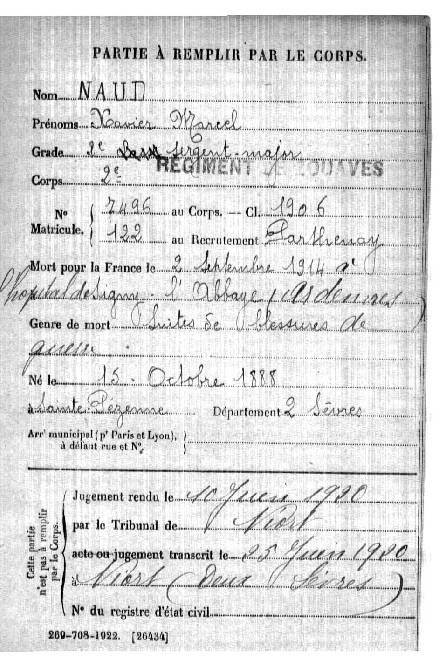 PARTIE À REMPLIR PAR LE CORPS.
Nom NAUD
Prénoms Xavier Marcel
Grade 2e sergent-major
Corps 2e RÉGIMENT DE ZOUAVES
No Matricule. 7496 au Corps. — Cl. 1906
122 au Recrutement Parthenay
Mort pour la France le 2 Septembre 1914 à
l'hopital de Signy - l'Abbaye (Ardennes)
Genre de mort Suites de blessures de
guerre
Né le 15 - Octobre 1888
à Sainte Pezenne Département 2 Sèvres
Arrt municipal (pr Paris et Lyon),
à défaut rue et No.
Cette partie n'est pas à remplir par le Corps.
Jugement rendu le 10 Juin 1920
par le Tribunal de Niort
acte ou jugement transcrit le 25 Juin 1920
à Niort (Deux Sèvres)
No du registre d'état civil
269-708-1922. [26434]